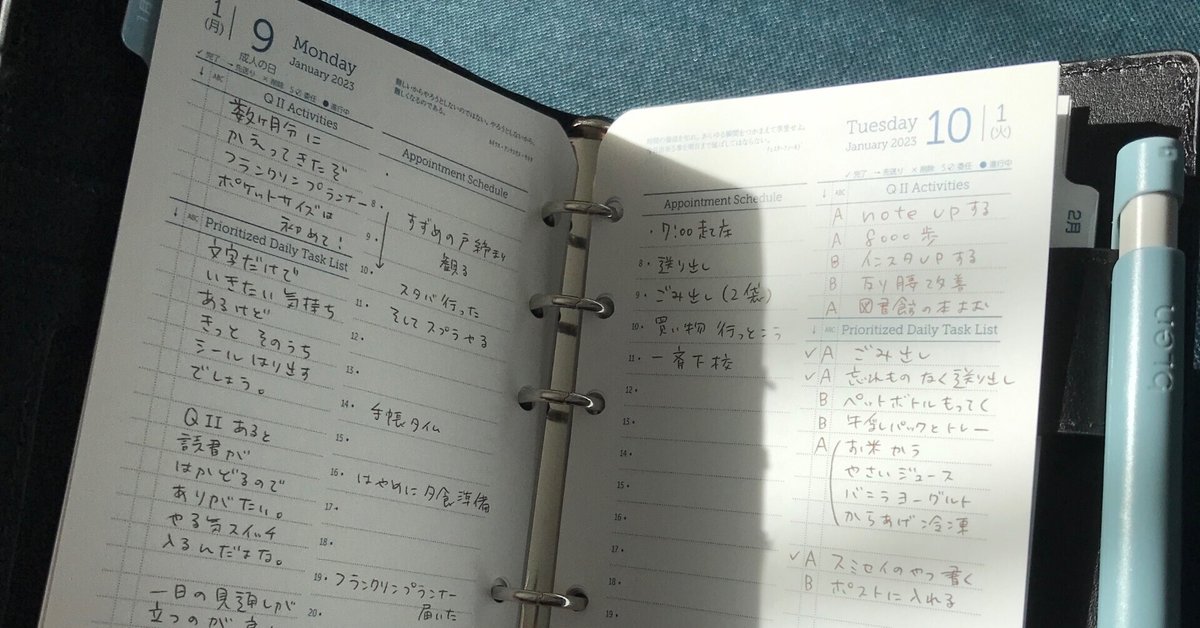 1
(月)
9
Monday
January 2023
成人の日
✓完了 →先送り ×削除 委任 ●進行中
↓ ABC
Q II Activities
数ヶ月分に
かえってきたぞ
フランクリンプランナー
ポケットサイズは
初めて!
↓ ABC Prioritized Daily Task List
文字だけで
いきたい気持ち
あるけど
きっと そのうち
シールはり出す
でしょう。
Q II あると
読書が
はかどるので
ありがたい。
やる気スイッチ
入るんだよな。
一日の見頭しが
難しいからやろうとしないのではない。やろうとしないから、
難しくなるのである。
Appointment Schedule
8
すずめの戸締まり
9
観る
10
スタバ行った
11
そしてスプラやる
12
13
14
手帳タイム
15
16
はやめに夕食準備
17
18
19 フランクリンプランナー
届いた
20
Tuesday
January 2023
10
1
(火)
✓完了 →先送り ×削除 委任 ●進行中
Appointment Schedule
・7:00起床
8 送り出し
9 ごみ出し(2袋)
10 買い物 行っとこう
11 一斉下校
12
13
14
15
16
17
18
19
↓ ABC
Q II Activities
A note upする
A 8000歩
B インスタUPする
B 反り腰改善
A 図書館の本よむ
↓ ABC Prioritized Daily Task List
✓A ごみ出し
✓A 忘れものなく送り出し
B ペットボトルもってく
B 牛乳パックとトレー
A お米かう
やさいジュース
バニラヨーグルト
からあげ冷凍
✓A スミセイのやつ書く
B ポストに入れる
2月